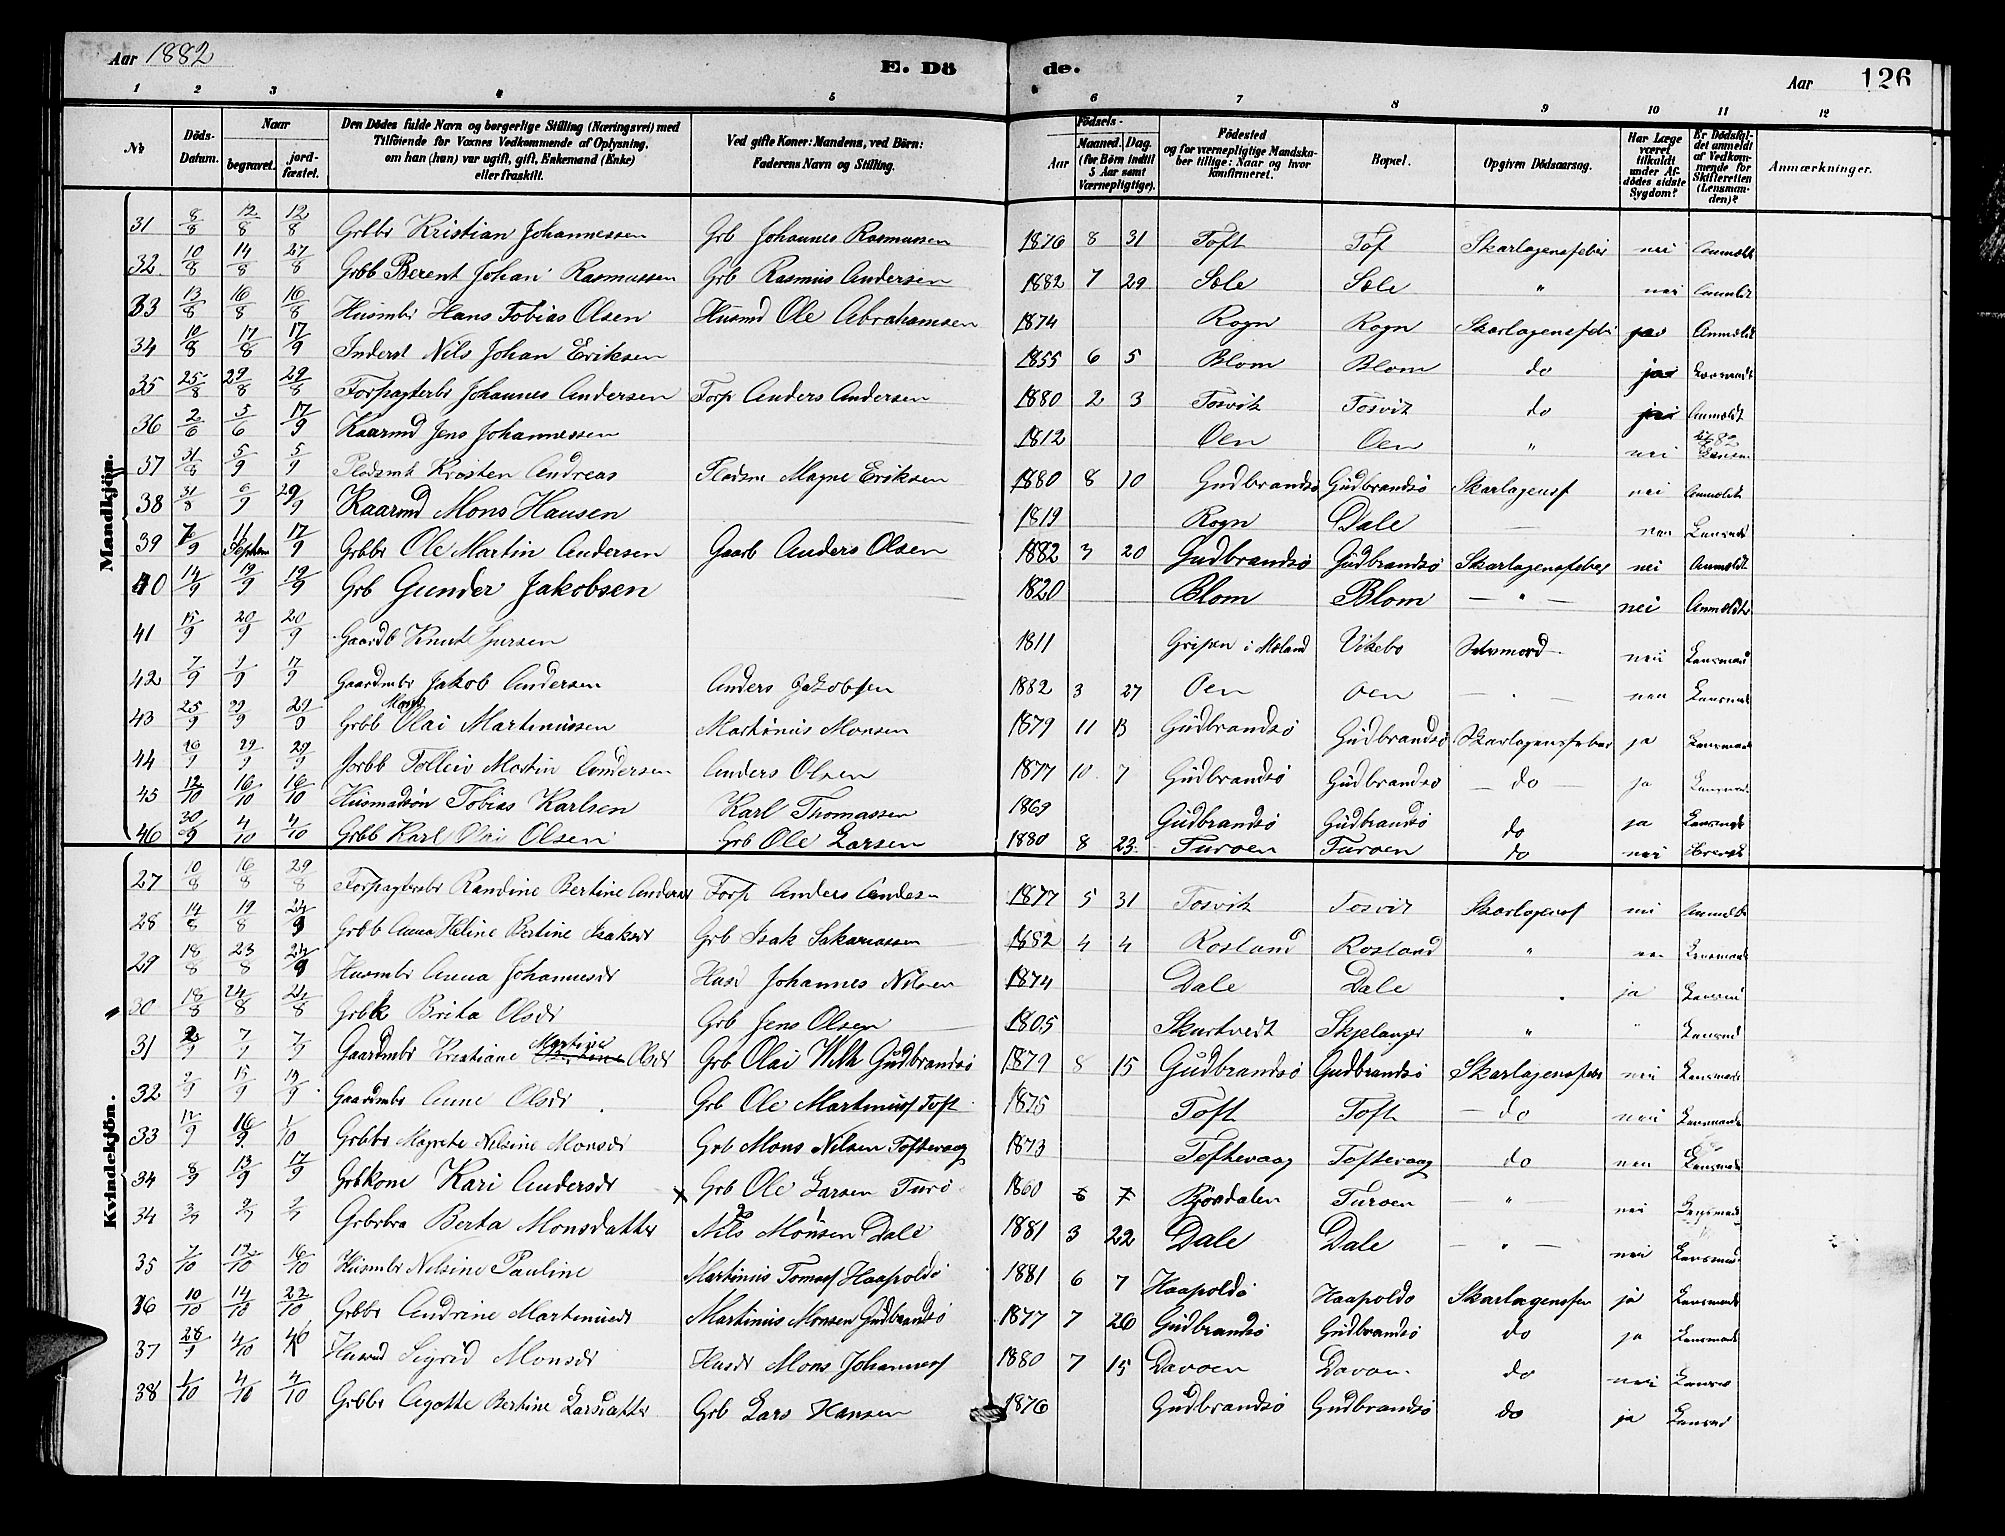 Aar 1882 E. Dö de. Aar 126
1 2 3 4 5 6 7 8 9 10 11 12
No Döds-Datum. Naar begravet. jordfæstet. Den Dödes fulde Navn og borgerlige Stilling (Næringsvei) med Tilföiende for Voxnes Vedkommende af Oplysning, om han (hun) var ugift, gift, Enkemand (Enke) eller fraskilt. Ved gifte Koner: Mandens, ved Börn: Faderens Navn og Stilling. Födsels- Aar Maaned. Dag. (for Börn indtil 5 Aar samt Værnepligtige). Födested og for værnepligtige Mandskaber tillige: Naar og hvor konfirmeret. Bopæl. Opgiven Dödsaarsag. Har Læge været tilkaldt under Afdödes sidste Sygdom? Er Dödsfaldet anmeldt af Vedkommende for Skifteretten (Lensmanden)? Anmærkninger.
Mandkjön.
31 8/8 12/8 12/8 Grbbr Kristian Johannessen Grb Johannes Rasmussen 1876 8 31 Toft Tof Skarlagensfeber nei Anmeldt
32 10/8 14/8 27/8 Grbb Berent Johan Rasmussen Grb Rasmus Andersen 1882 7 29 Sæle Sæle " nei Anmeldt
33 13/8 16/8 16/8 Husmbr Hans Tobias Olsen Husmd Ole Abrahamsen 1874 Rogn Rogn Skarlagensfebr ja Anmeldt
34 10/8 17/8 17/9 Inderst Nils Johan Eriksen 1855 6 5 Blom Blom do ja
35 25/8 29/8 29/8 Forpagterbr Johannes Andersen Forp Anders Andersen 1880 2 3 Tosvik Tosvik do Anmeldt
36 2/6 5/6 17/9 Kaarmd Jens Johannessen 1812 Oen Oen " nei
37 31/8 5/9 5/9 Kristen Andreas Magne Eriksen 1880 8 10 Gudbrandsö Gudbrandsö Skarlagensf nei Anmeldt
38 31/8 6/9 29/9 Kaarmd Mons Hansen 1819 Rogn Dale — nei Lensmd
39 7/9 11 Septem 17/9 Grbbr Ole Martin Andersen Gaarb Anders Olsen 1882 3 20 Gudbrandsö Gudbrandsö Skarlagensfeber nei Anmeldt
40 14/9 19/9 19/9 Grb Gunder Jakobsen 1820 Blom Blom — " — nei Anmeldt
41 15/9 20/9 20/9 Gaardb Knut Iversen 1811 i Mæland Vikebø Selvmord nei Lensmand
42 7/9 17/9 Gaardmbr Jakob Andersen Anders Jakobsen 1882 3 27 Oen Oen nei Lensmand
43 25/9 29/9 29/9 Grbb Mons Olai Martinussen Martinus Monsen 1879 11 13 Gudbrandsö Gudbrandsö Skarlagensfeber ja Lensmand
44 29/9 29/9 Tolleiv Martin Andersen Anders Olsen 1877 10 7 Gudbrandsö Gudbrandsö — do — ja Lensmand
45 12/10 16/10 16/10 Husmadsön Tobias Karlsen Karl Thomassen 1869 Gudbrandsö Gudbrandsö do ja Lensmand
46 30/9 4/10 4/10 Grbb Karl Olai Olsen Grb Ole Larsen 1880 8 23 Turoen Turoen do nei
Kvindekjön.
27 10/8 16/8 29/8 Forpagterbr Randine Bertine Anders Forp Anders Andersn 1877 5 31 Tosvik Tosvik Skarlagensf nei Anmeldt
28 14/8 19/8 Grbb Anna Heline Bertine Isaksdr Grb Isak Sakariassen 1882 4 4 Rosland Rosland " Lensmand
29 18/8 23/8 Husmbr Anna Johannesdr Husd Johannes Nilsen 1874 Dale Dale ja Lensmand
30 18/8 24/8 24/8 Grbk Brita Olsdr Grb Jens Olsen 1805 Skurtvedt Skjelanger " " Lensmd
31 2/9 7/9 7/9 Gaardmbr Kristiane Martine Olsdr Grb Olai Gudbrandsö 1879 8 15 Gudbrandsö Gudbrandsö Skarlagensfeber nei Lensmand
32 15/9 Gaardmbr Anne Olsdr Grb Ole Martinusf Toft 1875 Toft Toft — do nei Lensmand
33 12/9 16/9 1/10 Grbbr Magrete Nilsine Monsdr Grb Mons Nilsen Toftevaag 1873 Toftevaag Toftevaag do nei Lensmand
34 8/9 13/9 17/9 Grbkone Kari Andersdr x Grb Ole Larsen Turö 1860 6 7 Turoen — " nei Lensmand
34 Berta Monsdatter Nils Monsen Dale 1881 3 22 Dale Dale — " — nei Lensmand
35 7/10 12/10 16/10 Husmbr Nilsine Pauline Martinus Haapoldö 1881 6 7 Haapoldö Haapoldö Skarlagensfen ja Lensmand
36 10/10 14/10 22/10 Grbbr Andrine Martinusdr Martinus Monsen Gudbrandsö 1877 7 26 Gudbrandsö Gudbrandsö do ja Lensmand
37 28/9 4/10 Sigrid Monsdr Husdr Mons Johannesf 1880 7 15 Davoen Davoen do nei
38 1/10 4/10 4/10 Grbbr Agotte Bertine Larsdatter Grb Lars Hansen 1876 Gudbrandsö Gudbrandsö do ja Lensmd